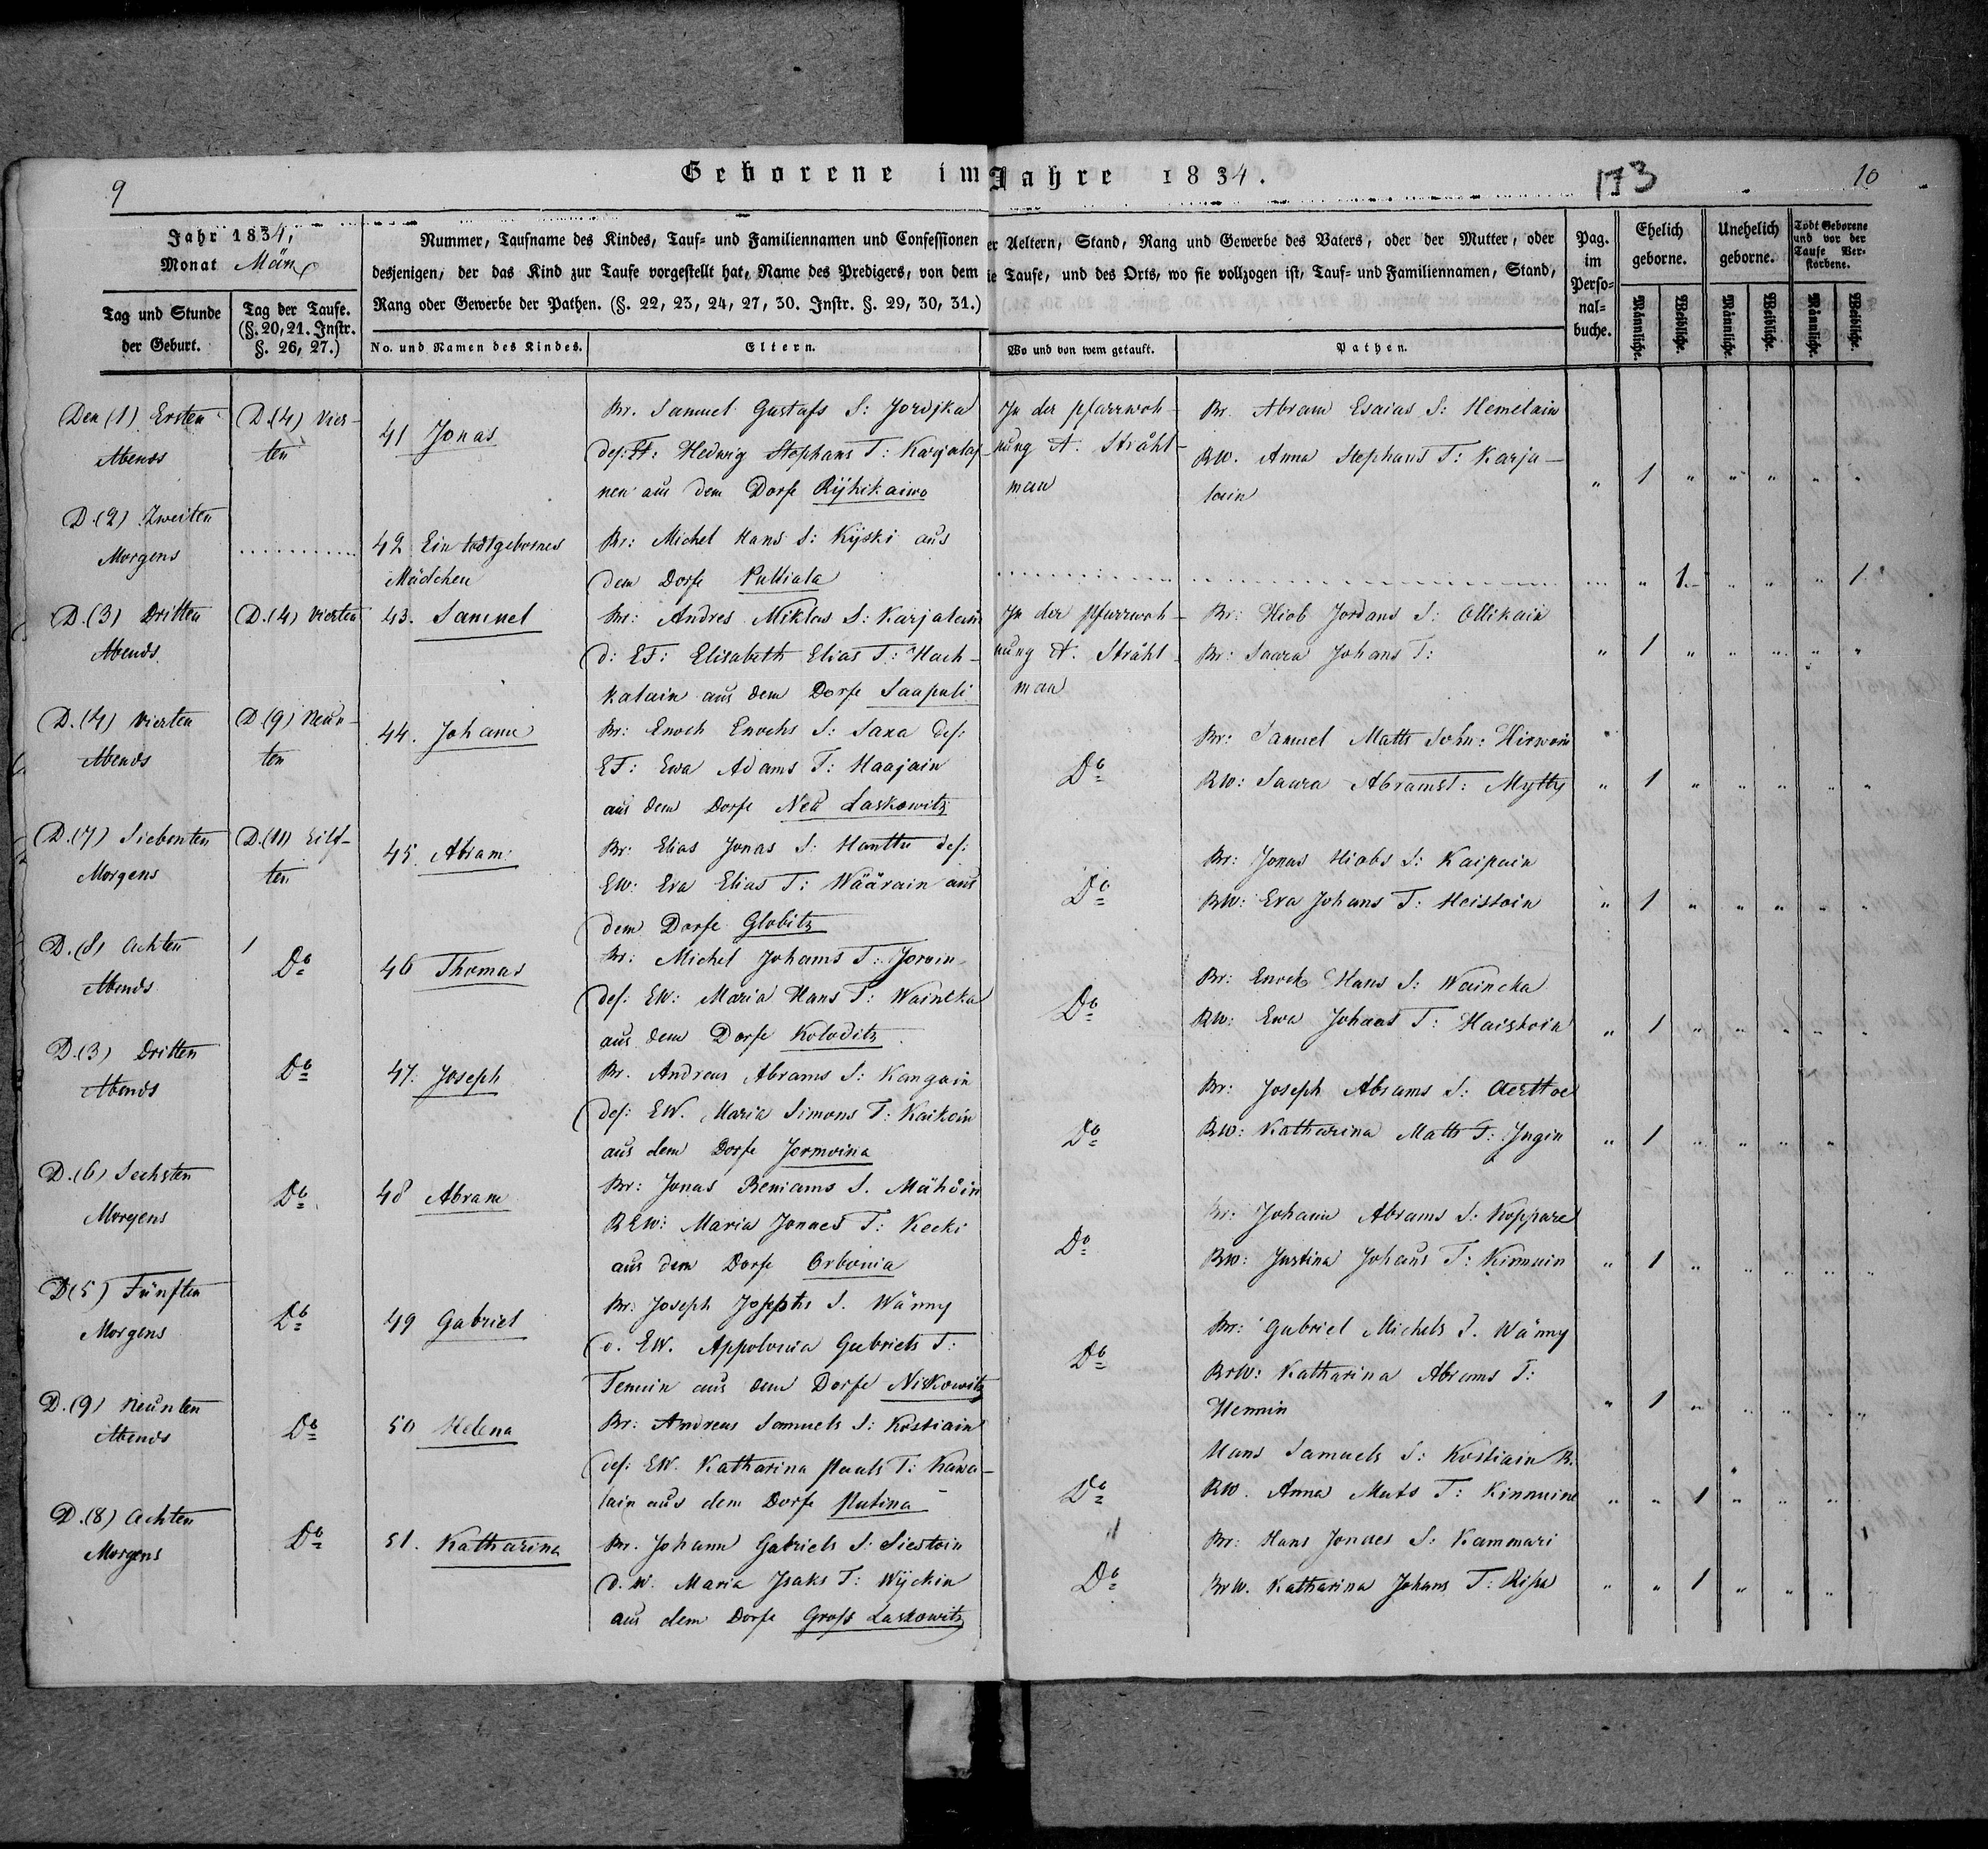 Geborene im Jahre 1834.
9
173
10
Jahr 1834,
Monat März
Tag und Stunde der Geburt.
Tag der Taufe. (§. 20, 21. Instr. §. 26, 27.)
Nummer, Taufname des Kindes, Tauf- und Familiennamen und Confessionen der Aeltern, Stand, Rang und Gewerbe des Vaters, oder der Mutter, oder
desjenigen, der das Kind zur Taufe vorgestellt hat, Name des Predigers, von dem die Taufe, und des Orts, wo sie vollzogen ist, Tauf- und Familiennamen, Stand,
Rang oder Gewerbe der Pathen. (§. 22, 23, 24, 27, 30. Instr. §. 29, 30, 31.)
No. und Namen des Kindes.
Eltern.
Wo und von wem getauft.
Pathen.
Pag. im Perso=nal=buche.
Ehelich geborne.
Unehelich geborne.
Todt Geborene und vor der Taufe Ver=storbene.
Männliche.
Weibliche.
Männliche.
Weibliche.
Männliche.
Weibliche.
Den (1) Ersten
Abends
D. (4) Vier-
ten
41 Jonas
Br. Samuel Gustafs S:
des: ET: Hedwig Stephans T: Karjalai-
nen aus dem Dorfe Rÿhikaiwo
In der Pfarrwoh-
nung A. Stråhl-
man
Br. Abram Esaias S: Hemelain
BW. Anna Stephans T: Karja-
lain
" 1 " " " " "
D. (2) Zweiten
Morgens
42 Ein todtgebornes
Mädchen
Br: Michel Hans S: Kÿski aus
dem Dorfe Pulliala
" 1 " " " 1
D. (3) Dritten
Abends
D. (4) Vierten
43. Samuel
Br: Andres Niklas S: Karjalain
d: ET: Elisabeth Elias T: Hach-
kalain aus dem Dorfe Saapuli
In der Pfarrwoh-
nung A. Stråhl-
man
Br: Hiob Jordans S: Ollikain
Br: Saara Johans T:
" 1 " " " " "
D. (4) Vierten
Abends
D (9) Neun-
ten
44. Johann
Br: Enoch Enochs S: Saxa des:
ET: Ewa Adams T: Haajain
aus dem Dorfe Neu Laskowitz
Do
Br: Samuel Matts Sohn: Hirwoin
BW: Saara Abramst: Mytty
" 1 " " " " "
D. (7) Siebenten
Morgens
D. (11) Eilf-
ten
45. Abram
Br: Elias Jonas S: Hanttu des:
EW: Eva Elias T: Wäärain aus
dem Dorfe Globitz
Do
Br: Jonas Hiobs S: Kaipain
BW: Eva Johans T: Hoistoin
" 1 " " " " "
D. (8) Achten
Abends
Do
46 Thomas
Br: Michel Johans T: Jorvin
des: EW: Maria Hans T: Waincka
aus dem Dorfe Koloditz
Do
Br: Enoch Hans S: Waincka
BW: Ewa Johans T: Haiskoin
" 1 " " " " "
D. (3) Dritten
Abends
Do
47. Joseph
Br. Andreas Abrams S: Kangain
des: EW. Maria Simons T: Kaikoin
aus dem Dorfe Jermoina
Do
Br: Joseph Abrams S:
BW: Katharina Matts T: Ingin
" 1 " " "
D. (6) Sechsten
Morgens
Do
48 Abram
Br: Jonas Beniams S. Mähöin
BEW: Maria Jonnes T: Kecki
aus dem Dorfe Orbonia
Do
Br: Johann Abrams S: Koppare
BW: Justina Johans T: Kinnuin
" 1 " " " " "
D (5) Fünften
Morgens
Do
49 Gabriel
Br: Joseph Josephs S. Wänny
d. EW. Appolonia Gabriels T:
Temin aus dem Dorfe Niskowitz
Do
Br: Gabriel Michels S. Wänny
BrW: Katharina Abrams T:
Hennin
" 1 " " " " "
D. (9) Neunten
Abends
Do
50 Helena
Br: Andreas Samuels S: Kostiain
des: EW. Katharina Pauls T: Kawa-
lain aus dem Dorfe Rutina
Do
Hans Samuels S: Kostiain B.
BW. Anna Mats T: Kinnuine
" " 1 " " "
D. (8) Achten
Morgens
Do
51. Katharina
Br. Johann Gabriels S: Siestoin
d. W. Maria Isaks T: Wÿckin
aus dem Dorfe Gross Laskowitz
Do
Br: Hans Jonnes S: Kammari
BrW. Katharina Johans T: Rissa
" " 1 " " "